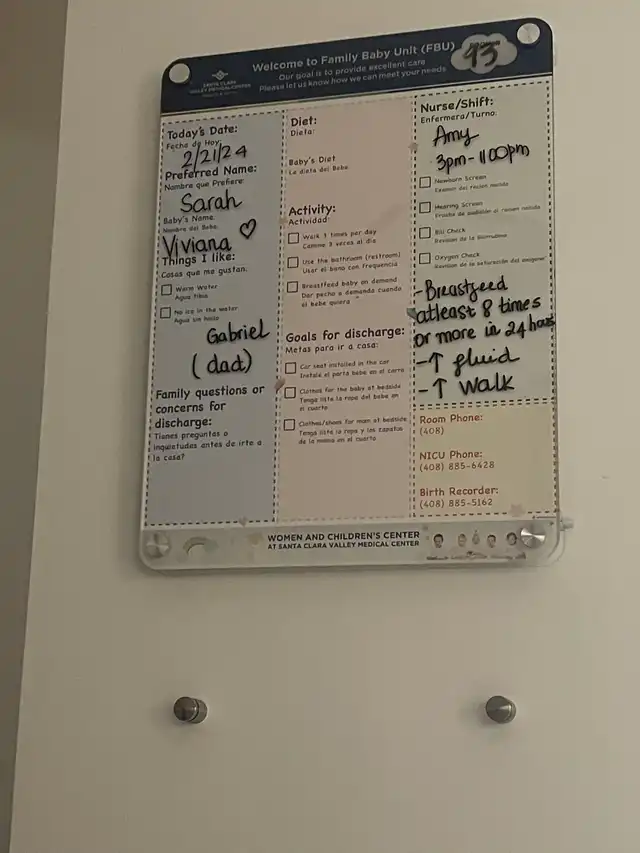 SANTA CLARA
VALLEY MEDICAL CENTER
Welcome to Family Baby Unit (FBU)
Our goal is to provide excellent care
Please let us know how we can meet your needs
93
Today's Date:
Fecha de Hoy:
2/21/24
Preferred Name:
Nombre que Prefiere:
Sarah
Baby's Name:
Nombre del Bebe:
Viviana ♡
Things I like:
Cosas que me gustan:
Warm Water
Agua tibia
No ice in the water
Agua sin hielo
Gabriel
(dad)
Family questions or
concerns for
discharge:
Tienes preguntas o
inquietudes antes de irte a
la casa?
Diet:
Dieta:
Baby's Diet
La dieta del Bebe
Activity:
Actividad:
Walk 3 times per day
Camine 3 veces al dia
Use the bathroom (restroom)
Usar el bano con frequencia
Breastfeed baby on demand
Dar pecho a demanda cuando
el bebe quiera
Goals for discharge:
Metas para ir a casa:
Car seat installed in the car
Instale el porta bebe en el carro
Clothes for the baby at bedside
Tenga lista la ropa del bebe en
el cuarto
Clothes/shoes for mom at bedside
Tenga lista la ropa y los zapatos
de la mama en el cuarto
Nurse/Shift:
Enfermera/Turno:
Amy
3pm-1100pm
Newborn Screen
Examen del recien nacido
Hearing Screen
Prueba de audición al recien nacido
Bili Check
Revision de la bilirrubina
Oxygen Check
Revision de la saturación del oxigeno
-Breastfeed
atleast 8 times
or more in 24 hours
-↑ fluid
-↑ walk
Room Phone:
(408)
NICU Phone:
(408) 885-6428
Birth Recorder:
(408) 885-5162
WOMEN AND CHILDREN'S CENTER
AT SANTA CLARA VALLEY MEDICAL CENTER